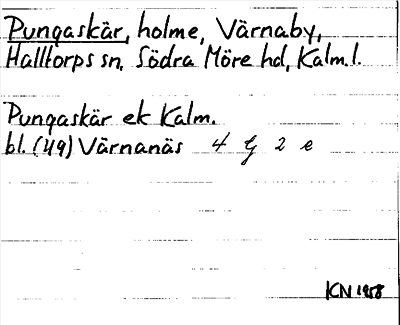 Pungaskär, holme, Värnaby,
Halltorps sn, Södra Möre hd, Kalm.l.
Pungaskär ek Kalm.
bl. (49) Värnanäs 4 G 2 e
KN 1958